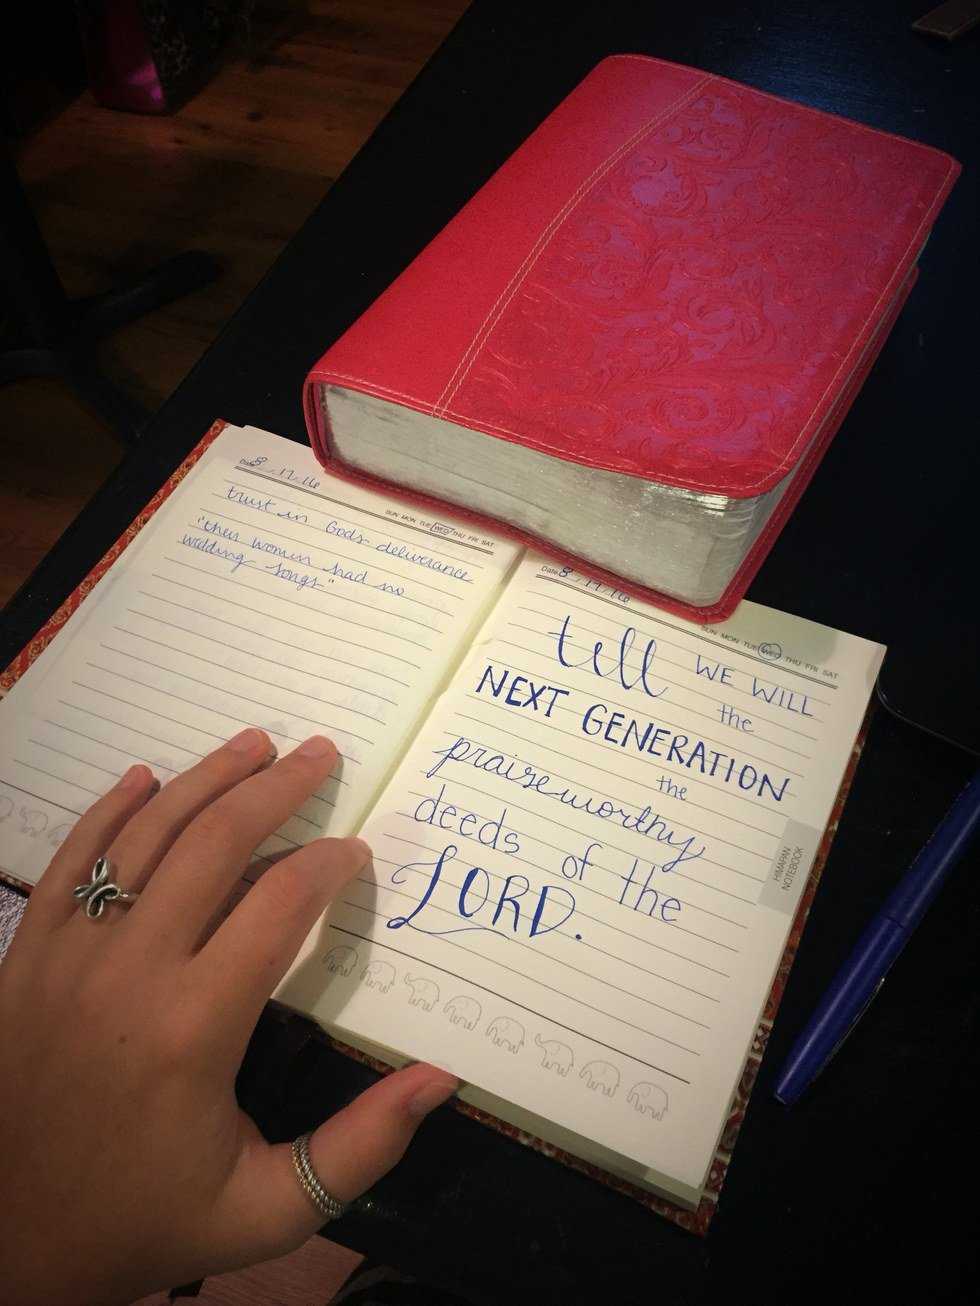 Date 8 . 17. 16
SUN MON TUE WED THU FRI SAT
trust in Gods deliverance
"their women had no
wedding songs"
Date 8 . 17. 16
SUN MON TUE WED THU FRI SAT
tell WE WILL
the
NEXT GENERATION
the
praiseworthy
deeds of the
LORD.
HIMAPAN
NOTEBOOK